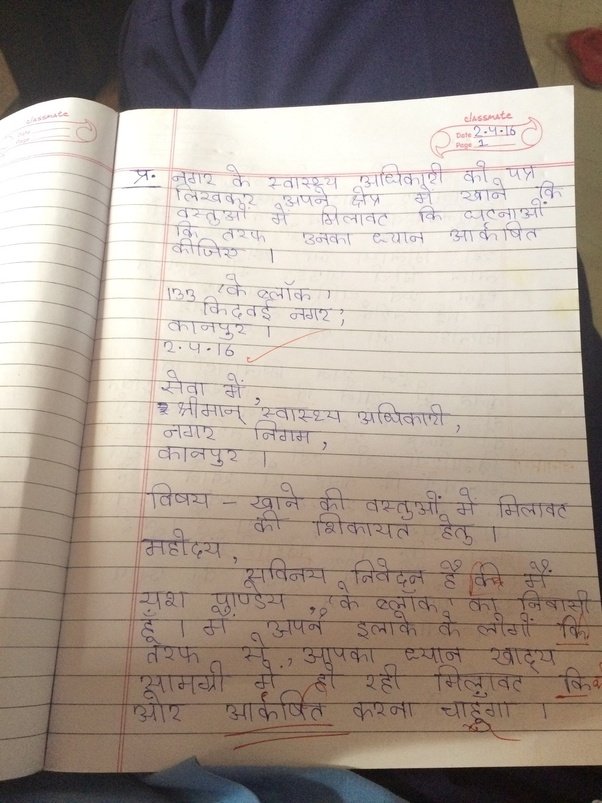 classmate
classmate
Date 2.4.16
Page 1
प्र. नगर के स्वास्थ्य अधिकारी को पत्र
लिखकर अपने क्षेत्र में खाने कि
वस्तुओं में मिलावट कि घटनाओं
कि तरफ उनका ध्यान आर्कषित
कीजिए ।
133 'के ब्लॉक'
किदवई नगर,
कानपुर ।
2.4.16
सेवा में,
श्रीमान् स्वास्थ्य अधिकारी,
नगर निगम,
कानपुर ।
विषय - खाने की वस्तुओं में मिलावट
की शिकायत हेतु ।
महोदय,
सविनय निवेदन है कि मैं
यश पाण्डेय, 'के ब्लॉक' का निवासी
हूँ । मैं अपने इलाके के लोगों कि
तरफ से, आपका ध्यान खाद्य
सामग्री में हो रही मिलावट कि
ओर आर्कषित करना चाहूंगा ।